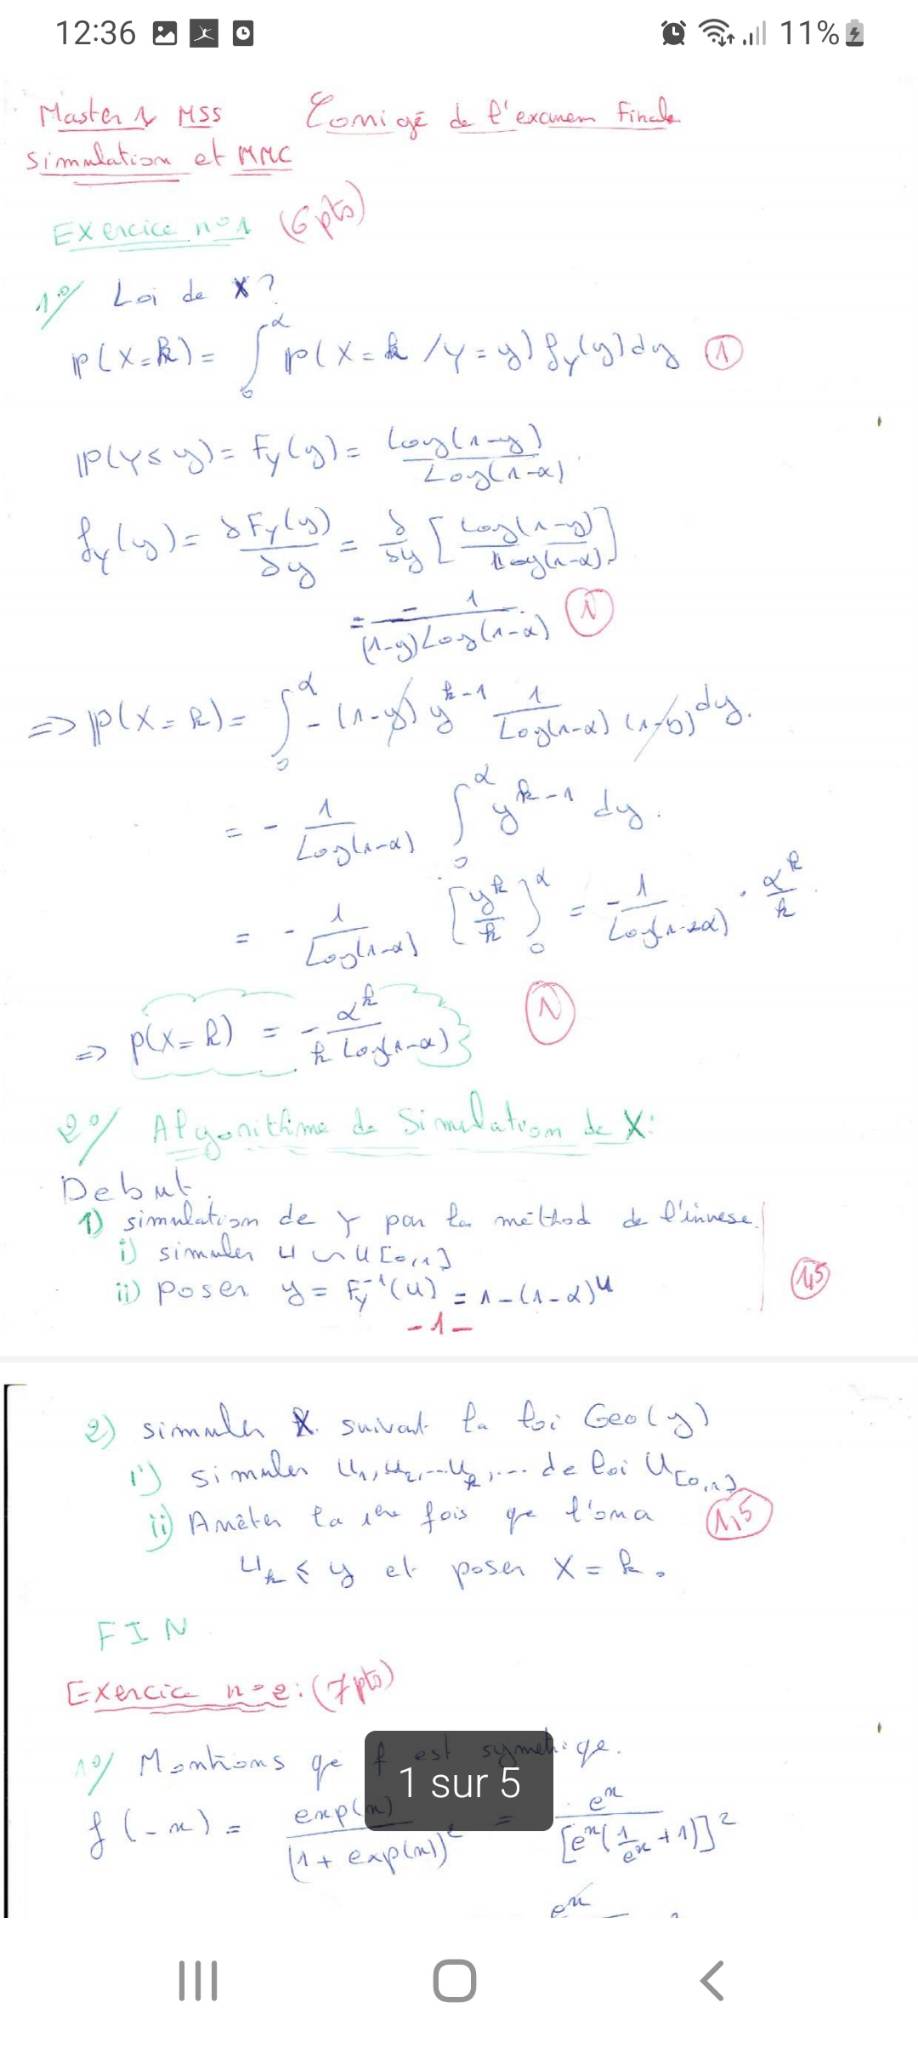 12:36 11%
Master 1 MSS Corrigé de l'examen Finale
simulation et MMC
Exercice n°1 (6pts)
1°/ Loi de X?
P(X=k) = ∫₀^α P(X=k /Y=y) f_Y(y) dy ①
P(Y≤y) = F_Y(y) = Log(1-y) / Log(1-α)
f_Y(y) = ∂F_Y(y) / ∂y = ∂/∂y [Log(1-y) / Log(1-α)]
= - 1 / (1-y)Log(1-α) ①
=> P(X=k) = ∫₀^α -(1-y) y^(k-1) 1 / Log(1-α) (1-y) dy.
= - 1 / Log(1-α) ∫₀^α y^(k-1) dy.
= - 1 / Log(1-α) [y^k / k]₀^α = -1 / Log(1-α) · α^k / k.
=> P(X=k) = - α^k / k Log(1-α) ①
2°/ Algorithme de Simulation de X:
Debut.
1) simulation de Y par la méthod de l'invese.
i) simuler U ~ U[0,1]
ii) poser y = F_Y^-1(U) = 1-(1-α)^U 1,5
-1-
2) simuler X suivant la loi Geo(y)
i) simuler U₁, U₂, ... U_k, ... de loi U[0,1]
ii) Arrêter la 1ère fois qe l'on a 1,5
U_k ≤ y et poser X = k.
FIN
Exercice n°2: (7pts)
1°/ Montrons qe f est symetriqe.
1 sur 5
f(-x) = exp(x) / (1+exp(x))² = e^x / [e^x(1/e^x + 1)]²
e^x